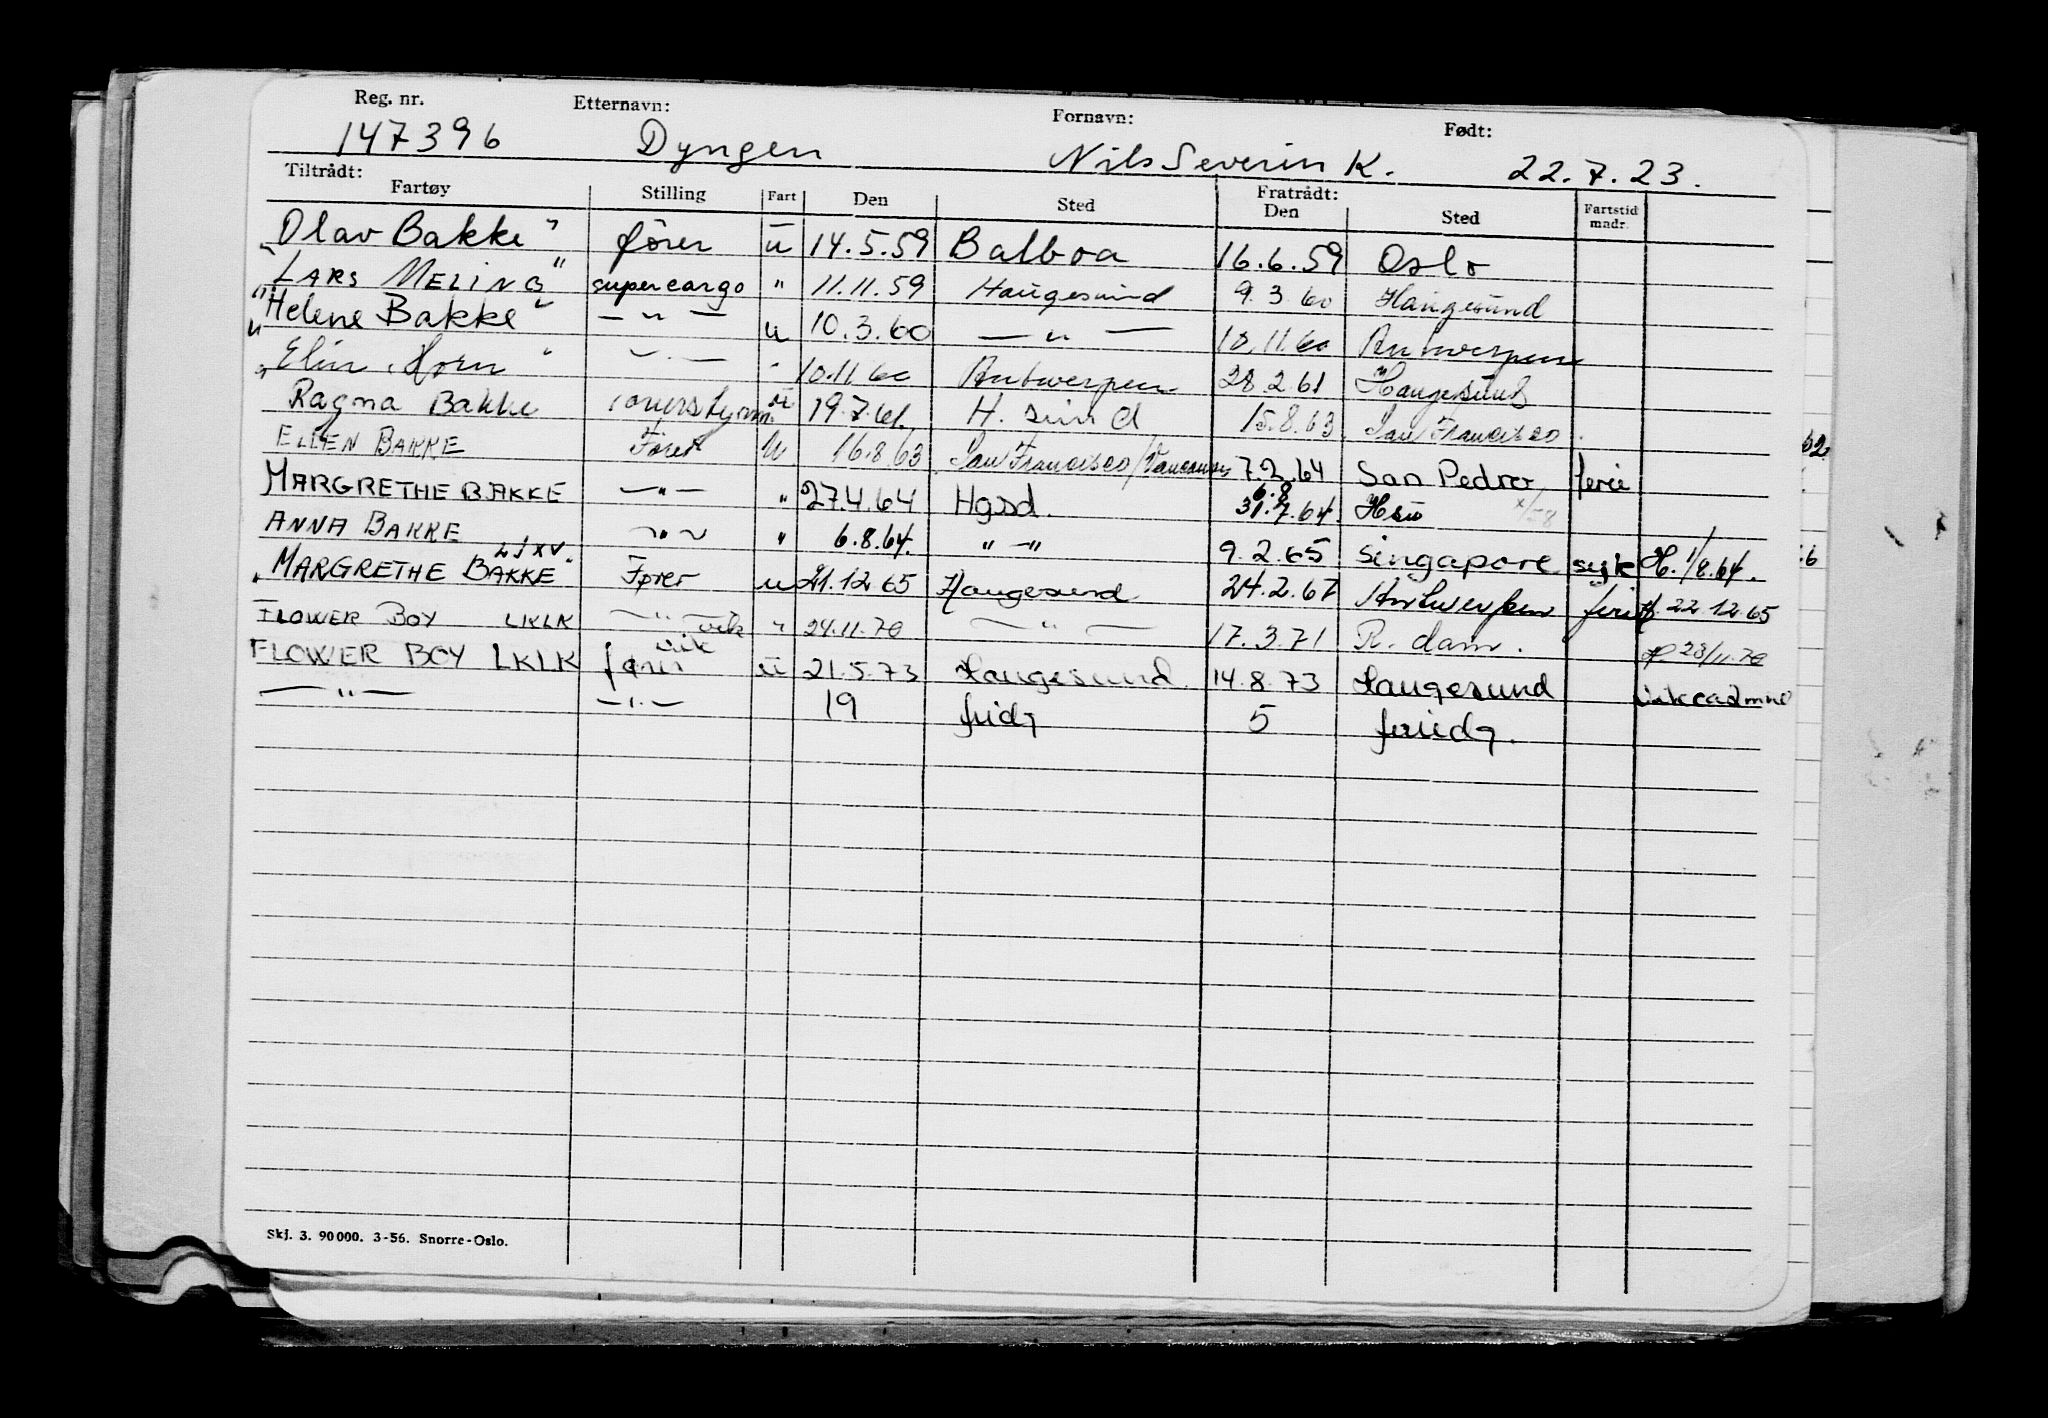 Reg. nr. Etternavn: Fornavn: Født:
147396 Dyngen Nils Severin K. 22.7.23.
Tiltrådt: Fratrådt:
Fartøy Stilling Fart Den Sted Den Sted Fartstid madr.
"Olav Bakke" fører u 14.5.59 Balboa 16.6.59 Oslo
"LARS MELING" supercargo " 11.11.59 Haugesund 9.3.60 Haugesund
"Helene Bakke" — " — u 10.3.60 — " — 10.11.60 Antwerpen
"Elin Horn" — " — 10.11.60 Antwerpen 28.2.61 Haugesund
Ragna Bakke u 19.7.61. H. sund 15.8.63 San Francisco
ELLEN BAKKE Fører u 16.8.63 San Francisco/Vancouver 7.2.64 San Pedro ferie
MARGRETHE BAKKE — " — " 27.4.64 Hgsd. 31.7.64. Hsu
ANNA BAKKE — " — " 6.8.64. " — " 9.2.65 Singapore syk H. 1/8.64.
LJXV.
"MARGRETHE BAKKE" Fører u 21.12.65 Haugesund 24.2.67 Antwerpen ferie H. 22.12.65
FLOWER BOY LKLK — " — vik " 24.11.70 — " — 17.3.71 R.dam. H 23/11.70
vik
FLOWER BOY LKLK fører u 21.5.73 Haugesund 14.8.73 Haugesund vik ca 2 mnd
— " — — " — 19 fridg 5 feriedg.
Skj. 3. 90000. 3-56. Snorre-Oslo.